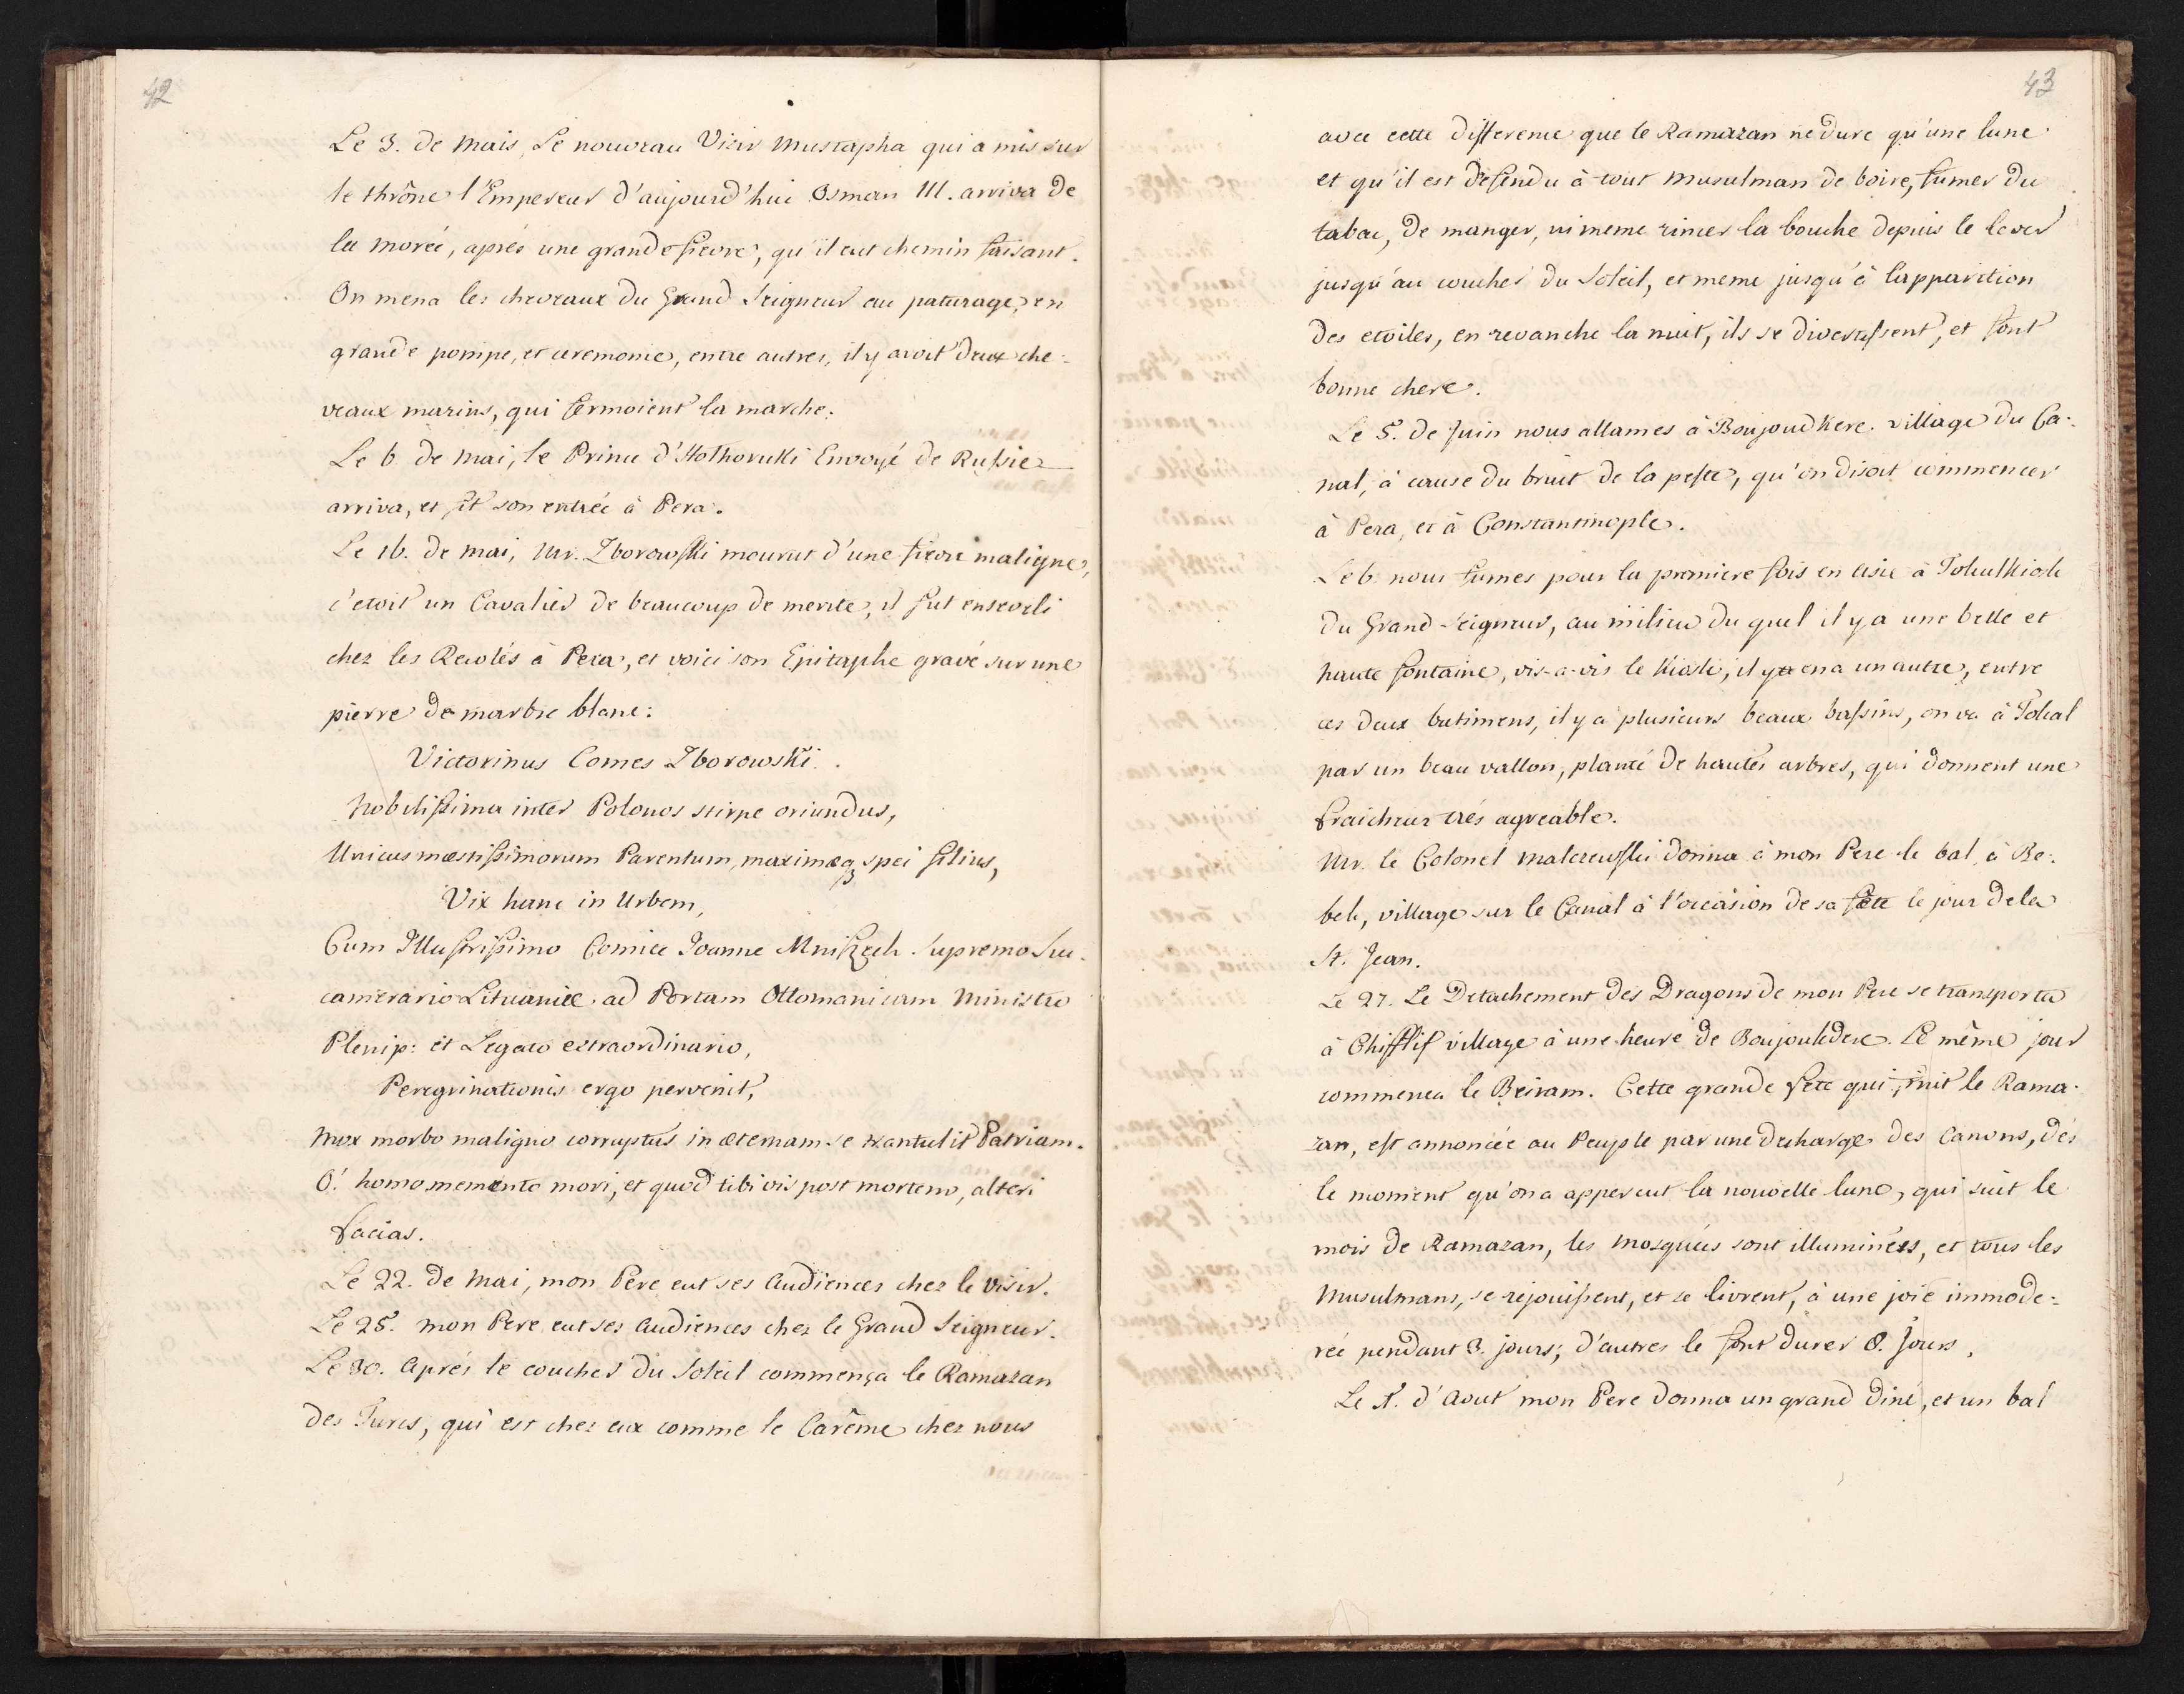 42
Le 3. de Mais, Le nouveau Visir Mustapha qui a mis sur
le thrône l'Empereur d'aujourd'hui Osman III. arriva de
la Morée, aprés une grande fievre, qu'il eut chemin faisant.
On mena les chevaux du Grand Seigneur au paturage, en
grande pompe, et ceremonie, entre autres, il y avoit deux che=
veaux marins, qui fermoient la marche.
Le 6 de Mai, le Prince d'Holhoruki Envoyé de Russie
arriva, et fit son entrée à Pera.
Le 16. de Mai, Mr. Zborowski mourut d'une fievre maligne,
c'etoit un Cavalier de beaucoup de merite, il fut enseveli
chez les Recolés à Pera, et voici son Epitaphe gravé sur une
pierre de marbre blanc:
Victorinus Comes Zborowski.
Nobilissima inter Polonos stirpe oriundus,
Unicus mœstissimorum Parentum, maximæq3 spei filius,
Vix hanc in Urbem,
Cum Illustrissimo Comite Joanne Mniszech Supremo Suc.
camerario Lituaniæ ad Portam Ottomanicam Ministro
Plenip: et Legato extraordinario,
Peregrinationis ergo pervenit,
Mox morbo maligno corruptus in æternam se trantulit Patriam.
O! homo memento mori, et quod tibi vis post mortem, alteri
facias.
Le 22. de Mai, mon Pere eut ses Audiences chez le Visir.
Le 25. mon Pere eut ses Audiences chez le Grand Seigneur.
Le 30. Aprés le coucher du Soleil commença le Ramazan
des Turcs, qui est chez eux comme le Carême chez nous
43
avec cette difference que le Ramazan ne dure qu'une lune
et qu'il est defendu à tout Musulman de boire, fumer du
tabac, de manger, ni meme rincer la bouche depuis le lever
jusqu'au coucher du Soleil, et meme jusqu'à l'apparition
des etoiles, en revanche la nuit, ils se divertissent, et font
bonne chere.
Le 5. de Juin nous allames à Boujoudkere village du Ca=
nal, à cause du bruit de la peste, qu'on disoit commencer
à Pera, et à Constantinople.
Le 6 nous fumes pour la premiere fois en Asie à
du Grand-Seigneur, au milieu du quel il y a une belle et
haute fontaine, vis-a-vis le Kiosk, il y en a un autre, entre
ces deux batimens, il y a plusieurs beaux bassins, on va à Tokal
par un beau vallon, planté de hautes arbres, qui donnent une
fraicheur trés agreable.
Mr. le Colonel Malczewski donna à mon Pere le bal à Be=
bek, village sur le Canal à l'occasion de sa fête le jour de la
St. Jean.
Le 27. Le Detachement des Dragons de mon Pere se transporta
à Chifflif village à une heure de Boujoukdere. Le même jour
commenca le Beiram. Cette grande fete qui finit le Rama=
zan, est annoncée au Peuple par une decharge des Canons, dés
le moment qu'on a apperceut la nouvelle lune, qui suit le
mois de Ramazan, les Mosquées sont illuminées, et tous les
Musulmans, se rejouissent, et se livrent, à une joie immode=
rée pendant 3. jours; d'autres le font durer 8. jours,
Le 1. d'Aout mon Pere donna un grand diné, et un bal